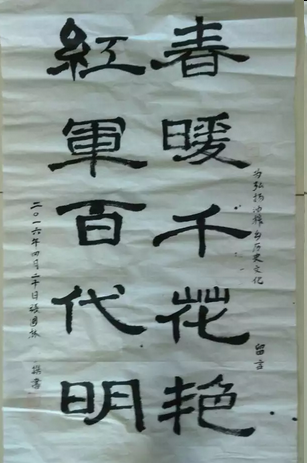 春暖千花艳
红軍百代明
为弘扬
历史文化
留言
二〇一六年四月二十日
書